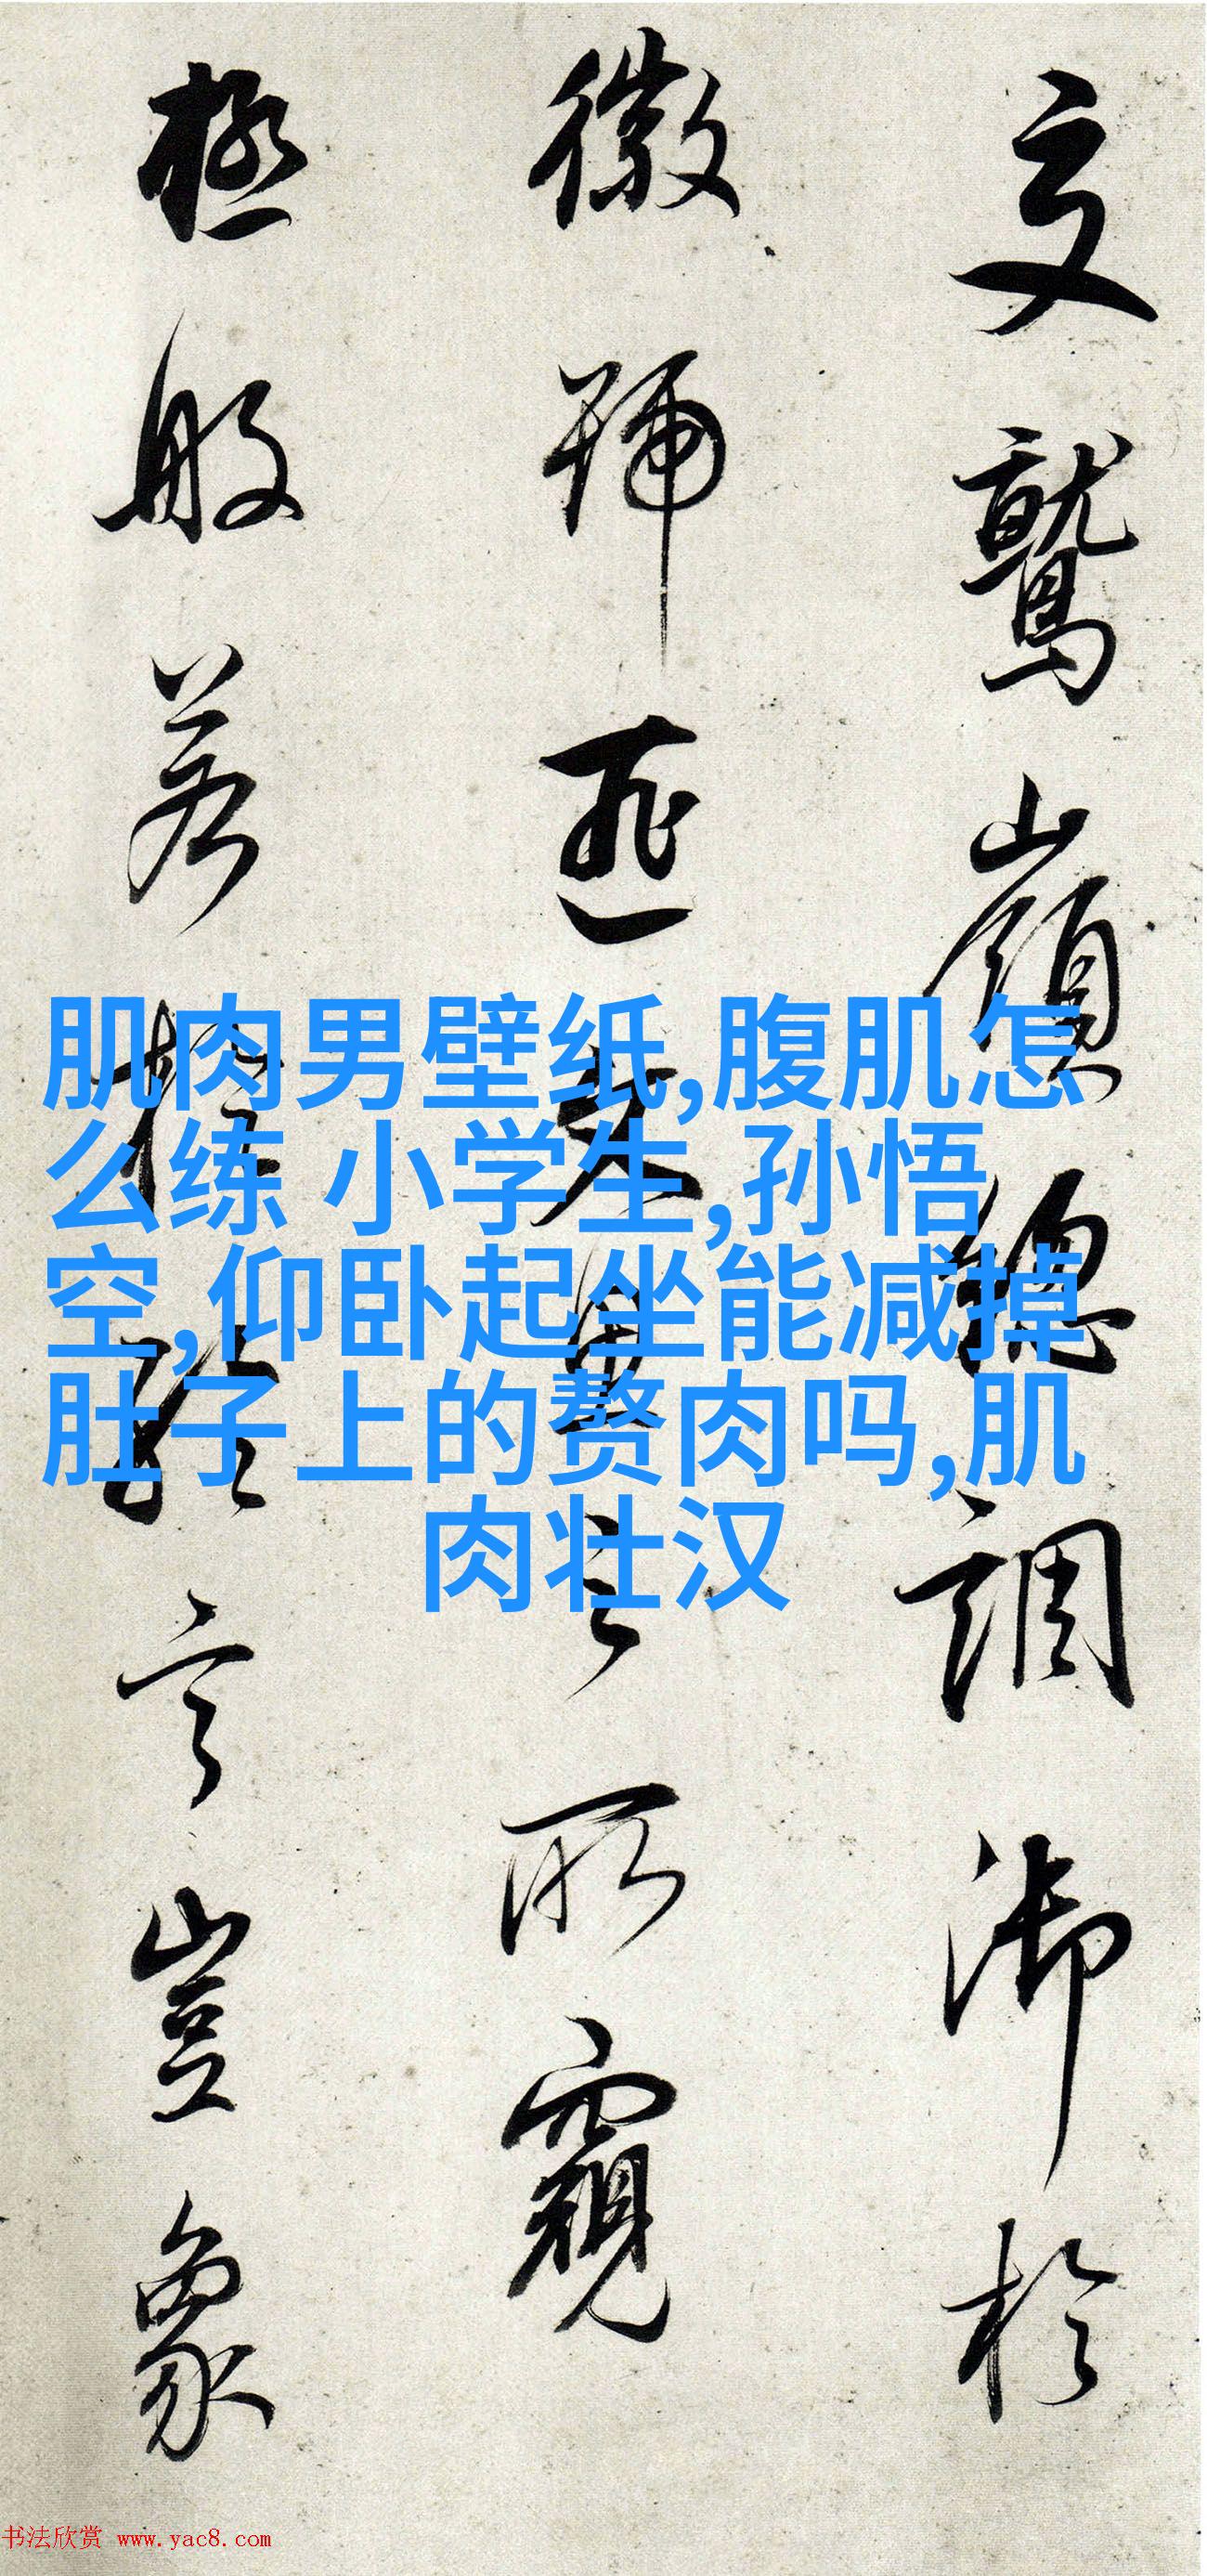 文鷲嶺總調御於
徽號匪文思之所窺
極般若 言豈象
肌肉男壁纸,腹肌怎
么练 小学生,孙悟
空,仰卧起坐能减掉
肚子上的赘肉吗,肌
肉壮汉
书法欣赏 www.yac8.com